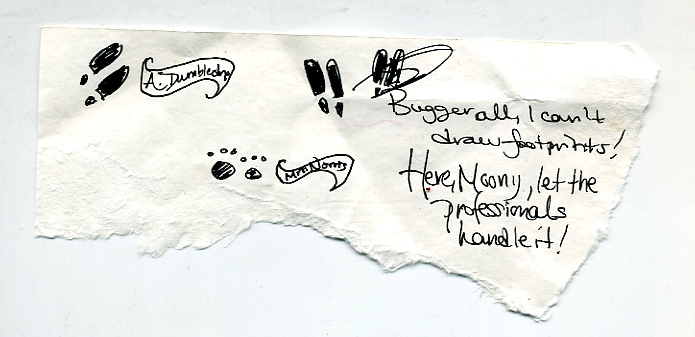 A. Dumbledore
Bugger all, I can't
draw footprints!
Mrs. Norris
Here, Moony, let the
professionals
handle it!